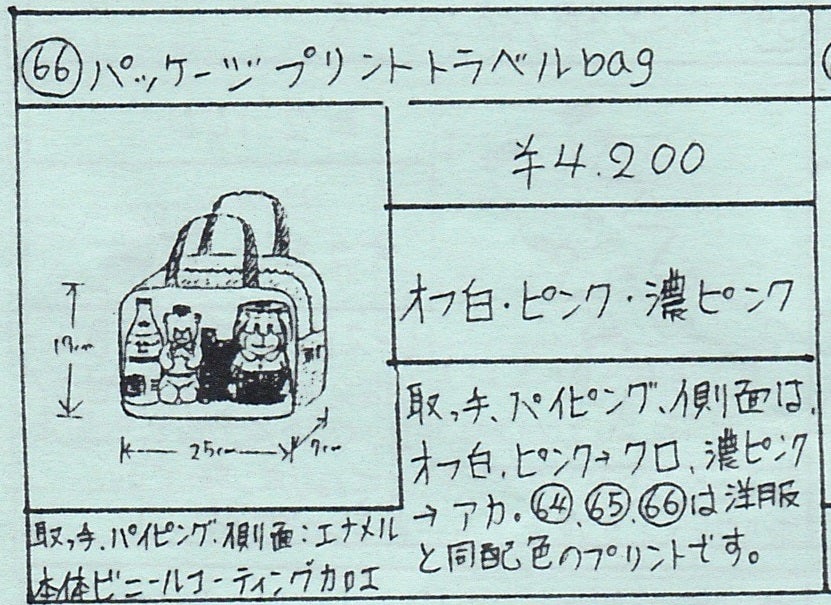 66 パッケージプリントトラベルbag
¥4.200
オフ白・ピンク・濃ピンク
25cm
7cm
取っ手、パイピング、側面:エナメル
本体ビニールコーティング加工
取っ手、パイピング、側面は、
オフ白、ピンク→クロ、濃ピンク
→アカ。64、65、66は洋服
と同配色のプリントです。